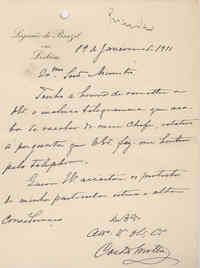 Legação do Brazil
em
Lisboa
19 de Janeiro de 1911
Exmo Snr. Ministro
Tenho a honra de remetter a
V. Ex. o incluso telegramma que aca-
bo de receber do meu Chefe, relativo
á pergunta que V. Ex. fez-me hontem
pelo telephone.
Queira V. acceitar os protestos
de minha particular estima e alta
consideração
de V. Ex.
Costa Motta